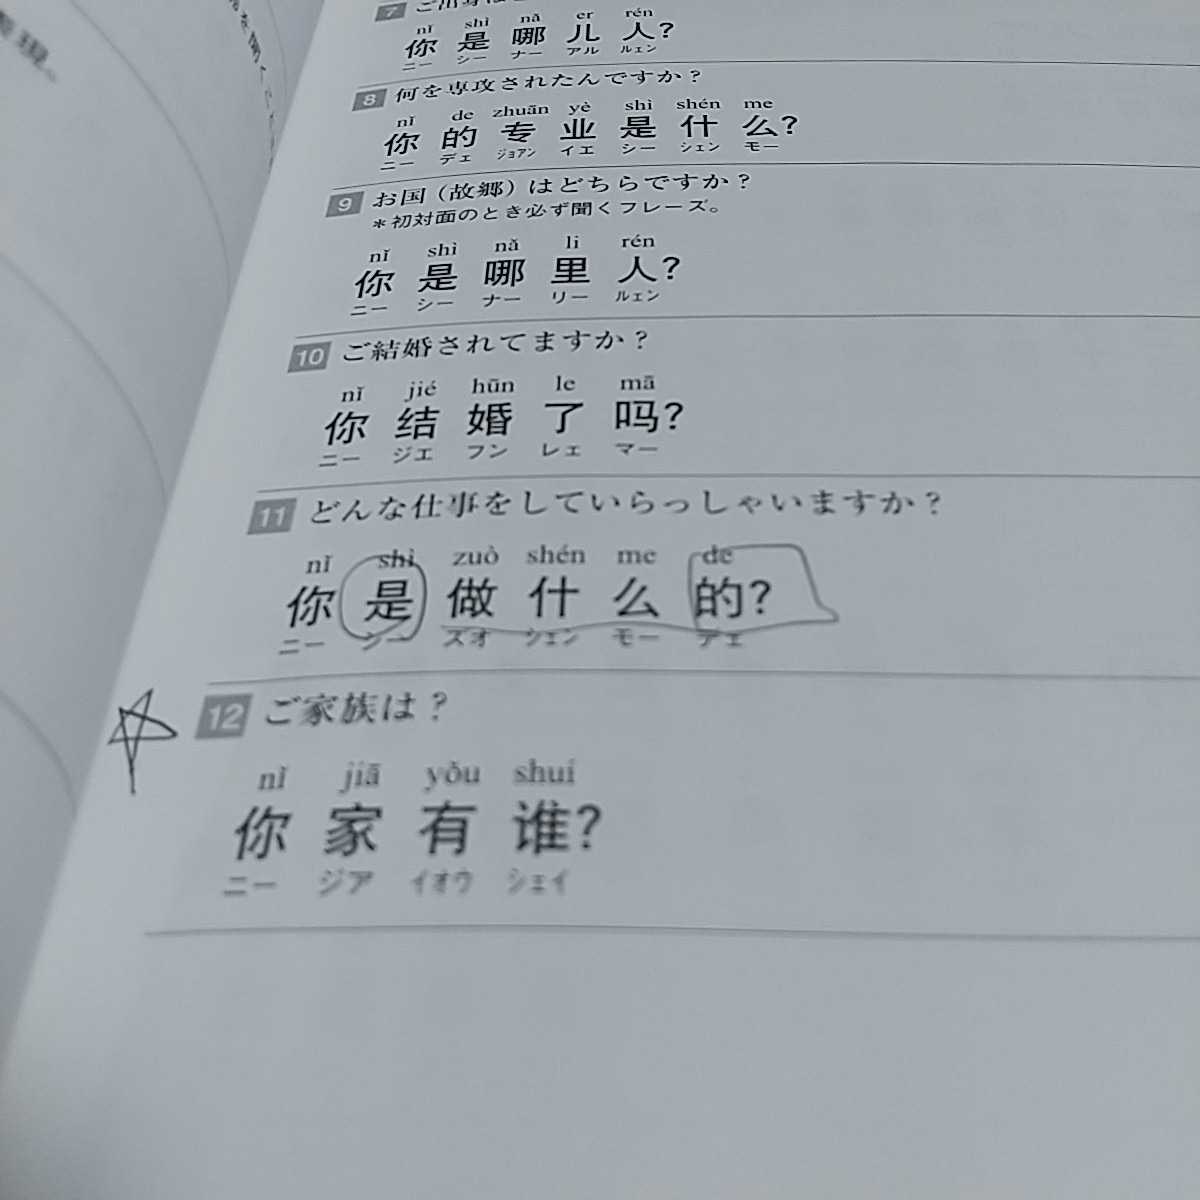 現。
7
nǐ shì nǎ er rén
你是哪儿人?
ニー シー ナー アル ルェン
8 何を専攻されたんですか？
nǐ de zhuān yè shì shén me
你的专业是什么?
ニー デェ ジョアン イエ シー シェン モー
9 お国（故郷）はどちらですか？
＊初対面のとき必ず聞くフレーズ。
nǐ shì nǎ li rén
你是哪里人?
ニー シー ナー リー ルェン
10 ご結婚されてますか？
nǐ jié hūn le mā
你结婚了吗?
ニー ジエ フン レェ マー
11 どんな仕事をしていらっしゃいますか？
nǐ shì zuò shén me de
你是做什么的?
ニー シー ズオ シェン モー デェ
12 ご家族は？
nǐ jiā yǒu shuí
你家有谁?
ニー ジア イオウ シェイ